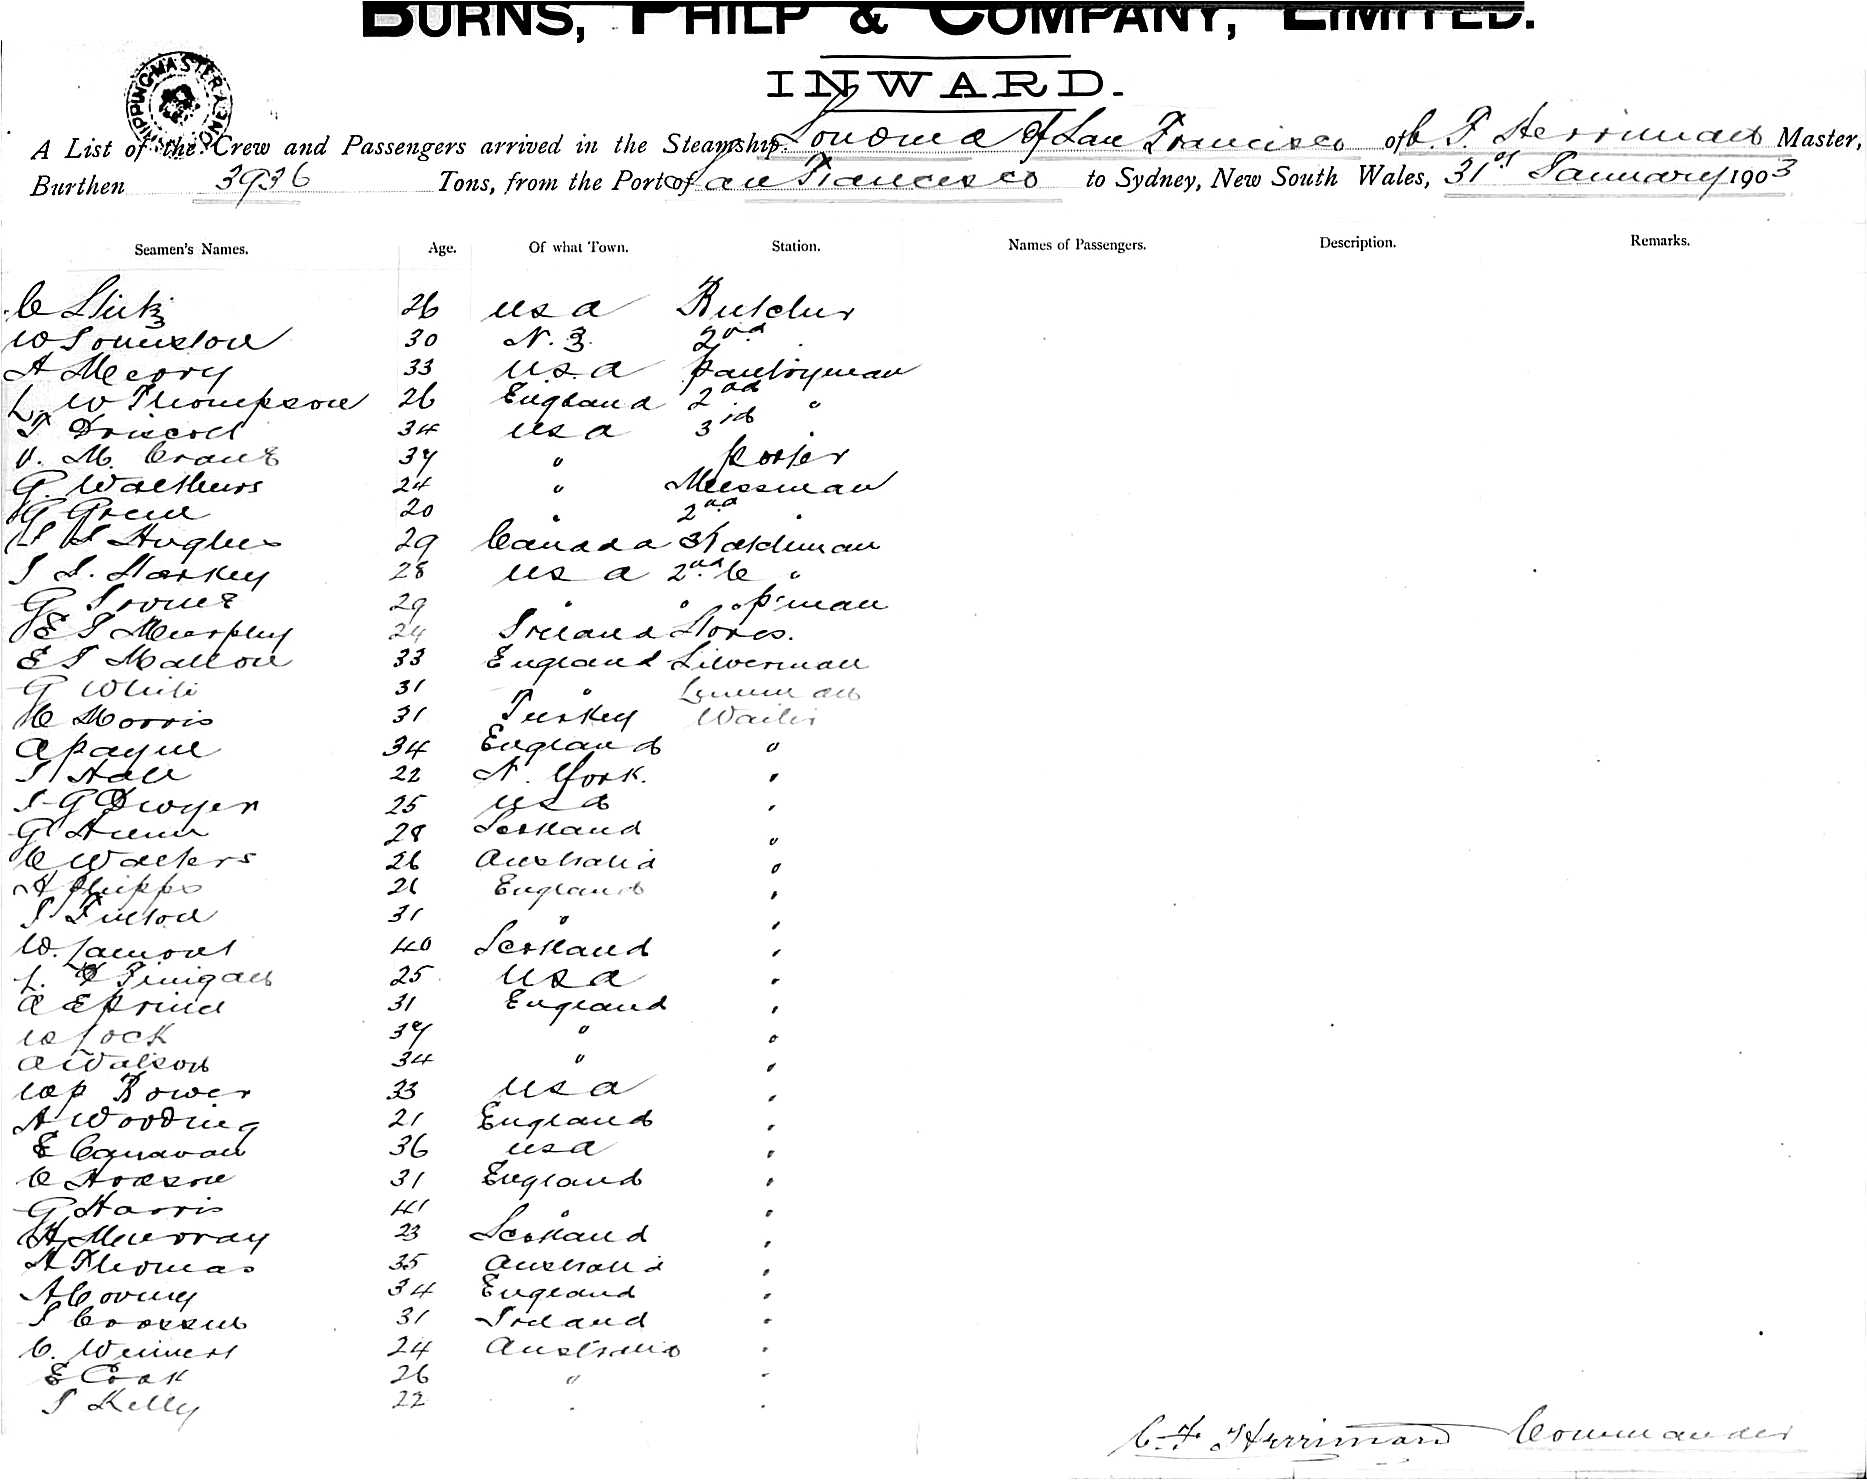 BURNS, PHILP & COMPANY, LIMITED.
INWARD.
A List of the Crew and Passengers arrived in the Steamship Sonoma of San Francisco of C. F. Herriman Master,
Burthen 3936 Tons, from the Port of San Francisco to Sydney, New South Wales, 31st January 1903
Seamen's Names. Age. Of what Town. Station. Names of Passengers. Description. Remarks.
C 26 USA Butcher
W 30 N. Z. 2nd "
A 33 U.S.A Pantryman
L. W Thompson 26 England 2nd "
T Driscoll 34 USA 3rd "
V. M. Crane 37 " Porter
G. Walthers 24 " Messman
G Green 20 " 2nd "
Hughes 29 Canada
J. Starkey 28 USA 2nd C "
G 29 " " " P'man
E J Murphy 24 Ireland Stores.
E J Mallon 33 England Silverman
G White 31 " Linenman
C Morris 31 Turkey Waiter
A Payne 34 England "
J Hall 22 N. York. "
J G Dwyer 25 USA "
G 28 Scotland "
C Walters 26 Australia "
A Phipps 26 England "
J Fulton 31 " "
W. Lamont 40 Scotland "
L. D Finigan 25 USA "
A E 31 England "
W Lock 37 " "
A Watson 34 " "
W P Bower 33 USA "
A Wooding 21 England "
E Canavan 36 USA "
C Hodson 31 England "
G Harris 41 " "
H Murray 23 Scotland "
A Thomas 35 Australia "
A 34 England "
J 31 Ireland "
C. 24 Australia "
E Cook 26 " "
J Kelly 22 " "
C. F. Herriman Commander